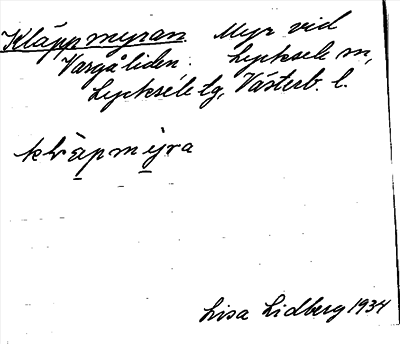 Kläppmyran Myr vid
Vargåliden. Lycksele m,
Lycksele tg, Västerb. l.
Lisa Lidberg 1934